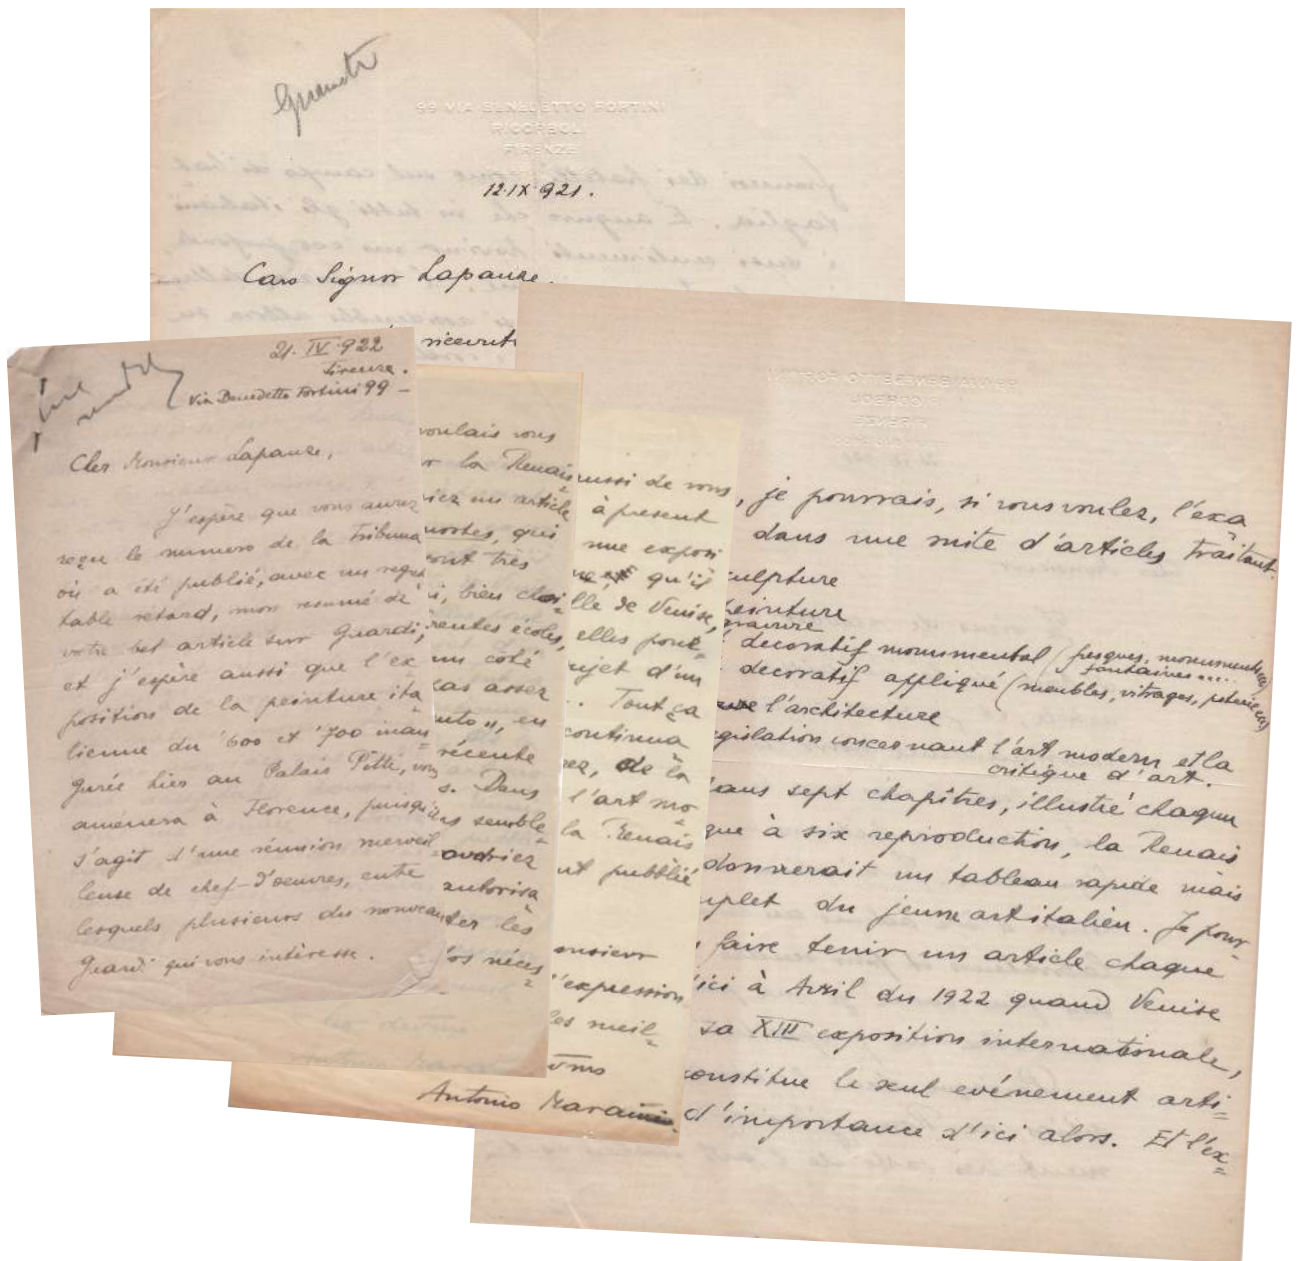 99 VIA BENEDETTO FORTINI
RICORBOLI
FIRENZE
12.IX.921.
Caro Signor Lapauze.
ricevuto
21. IV. 922
Firenze.
Via Benedetto Fortini 99 -
Cher Monsieur Lapauze,
J'espère que vous aurez
reçu le numero de la Tribuna
où a été publié, avec un regret
table retard, mon resumé de
votre bel article sur Guardi,
et j'espère aussi que l'ex
position de la peinture ita
lienne du '600 et '700 inau
gurée hier au Palais Pitti, vous
amènera à Florence, puisqu'
s'agit d'une réunion merveil
leuse de chef-d'oeuvres, entre
lesquels plusieurs des nouveaux
Guardi qui vous intèresse.
voulais vous
la Renais=
riez un article
qui
sont très
, bien choi=
rentes écoles,
un côté
as assez
nto,, en
récente
s. Dans
semble=
voudriez
autorisa
ter lès
nèces=
aussi de vous
à present
une exposi
qu'il
lle de Venise,
elles pour=
ujet d'un
.. Tout ça
continua
de la
l'art mo=
la Renais
nt pubblié
onsieur
l'expression
les meil=
Antonio Maraini.
, je pourrais, si vous voulez, l'exa
dans une suite d'articles traîtant.
culpture
peinture
gravure
decoratif monumental (fresques, monuments
fontaines.....
decoratif appliqué (meubles, vitrages, poterie ecc)
l'architecture
egislation concernant l'art modern et la
critique d'art.
dans sept chapîtres, illustré chaqun
que à six reproduction, la Renais
donnerait un tableau rapide mais
mplet du jeune art italien. Je pour=
faire tenir un article chaque
d'ici à Avril du 1922 quand Venise
sa XIII exposition internationale,
constitue le seul evénement arti=
d'importance d'ici alors. Et l'ex=